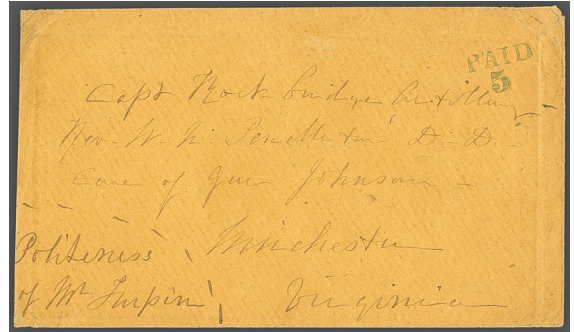 PAID
5
Capt Rockbridge Artillery
Rev. W. N. Pendleton D. D.
Care of Genl Johnson
Winchester
Virginia
Politeness
of Mr Turpin